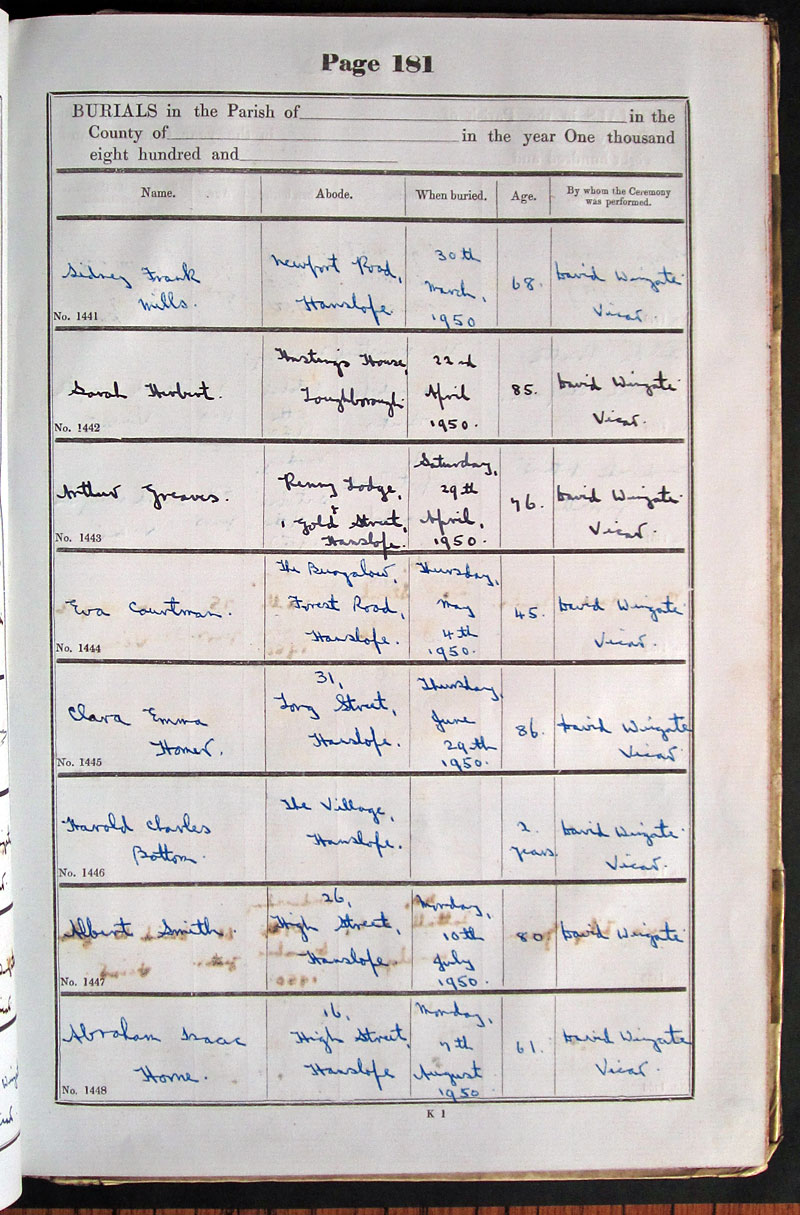 Page 181
BURIALS in the Parish of in the
County of in the year One thousand
eight hundred and
Name. Abode. When buried. Age. By whom the Ceremony was performed.
Sidney Frank Mills.
Newport Road, Hanslope
30th March, 1950
68.
David Wingate Vicar.
No. 1441
Sarah Herbert.
Hastings House, Loughborough
22nd April 1950.
85.
David Wingate Vicar.
No. 1442
Arthur Greaves.
Lodge, 1 Gold Street, Hanslope.
Saturday, 29th April, 1950.
76.
David Wingate Vicar.
No. 1443
Eva Courtman.
The Bungalow, Forest Road, Hanslope.
Thursday, May 4th 1950.
45.
David Wingate Vicar.
No. 1444
Clara Emma Homer.
31, Long Street, Hanslope.
Thursday, June 29th 1950.
86.
David Wingate Vicar
No. 1445
Harold Charles Bottom.
The Village, Hanslope.
2 years.
David Wingate Vicar.
No. 1446
Albert Smith.
26, High Street, Hanslope
Monday, 10th July 1950.
80
David Wingate
No. 1447
Abraham Isaac Horne.
16, High Street, Hanslope
Monday, 7th August 1950
61.
David Wingate Vicar.
No. 1448
K 1